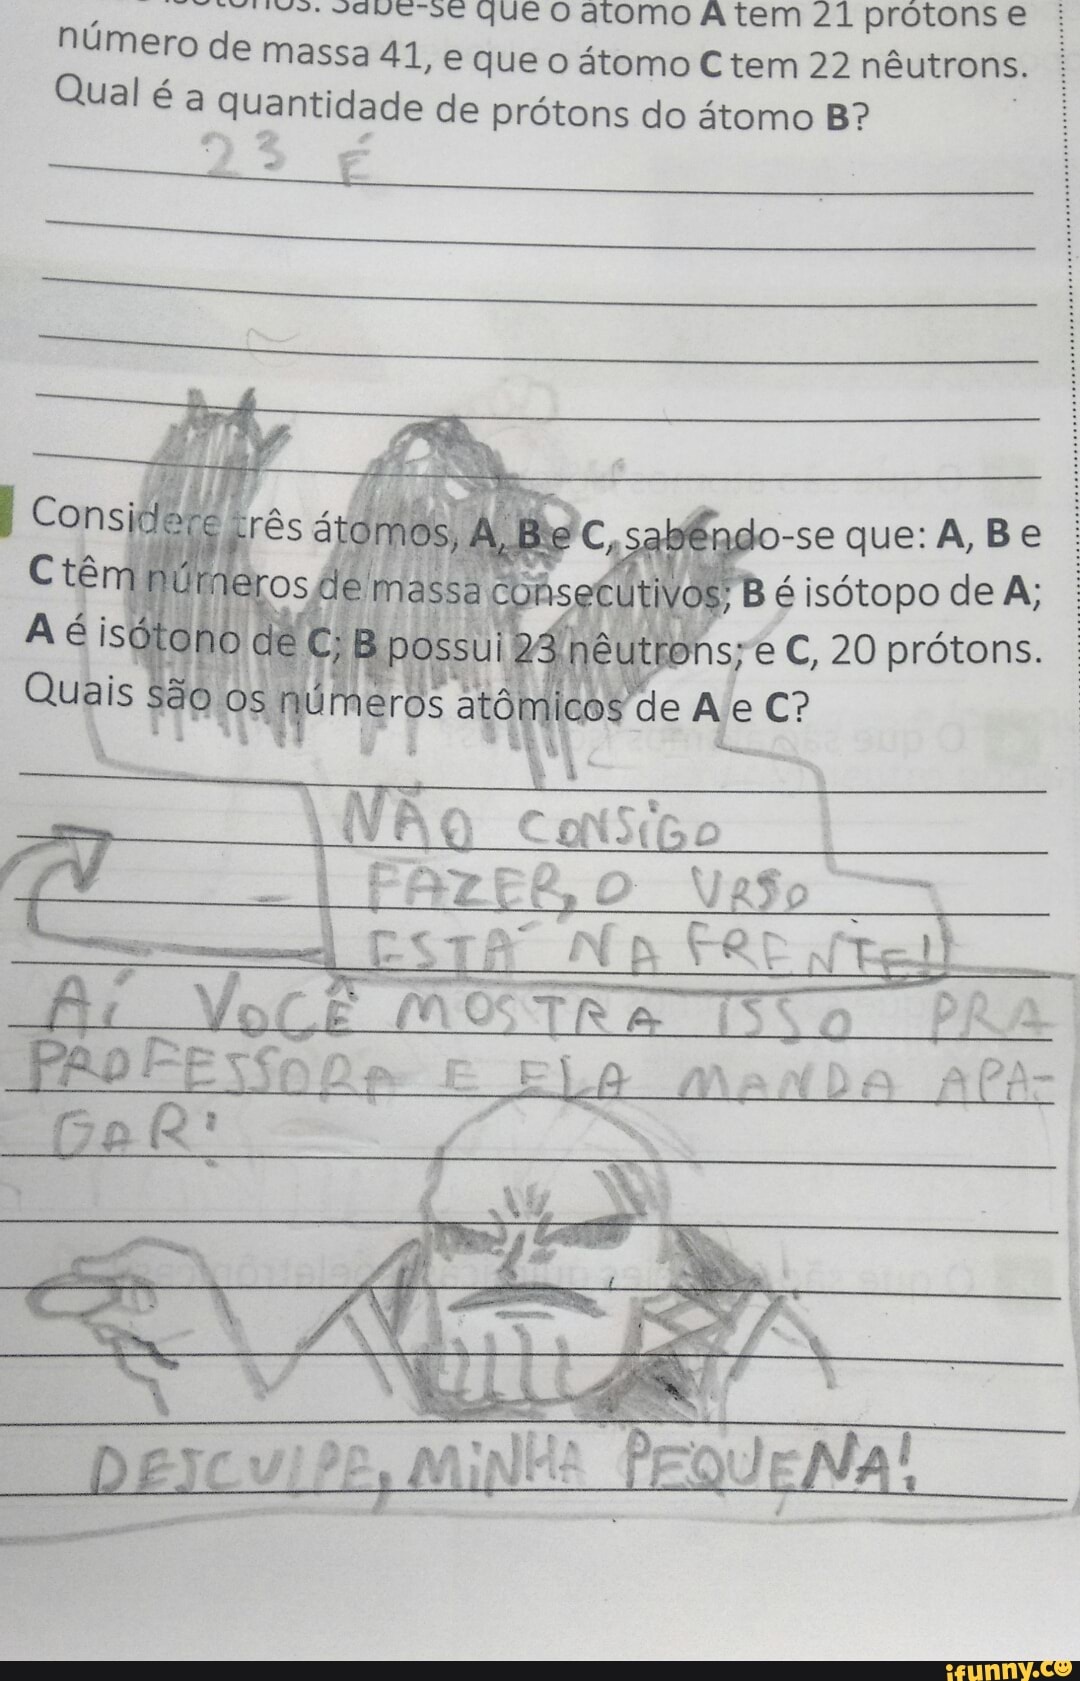 Sabe-se que o átomo A tem 21 prótons e
número de massa 41, e que o átomo C tem 22 nêutrons.
Qual é a quantidade de prótons do átomo B?
23 É
Considere três átomos, A, B e C, sabendo-se que: A, B e
C têm números de massa consecutivos; B é isótopo de A;
A é isótono de C; B possui 23 nêutrons; e C, 20 prótons.
Quais são os números atômicos de A e C?
NÃO CONSIGO
FAZER, O URSO
ESTÁ NA FRENTE!
AÍ VOCÊ MOSTRA ISSO PRA
PROFESSORA E ELA MANDA APA-
GAR:
DESCULPE, MINHA PEQUENA!
ifunny.co